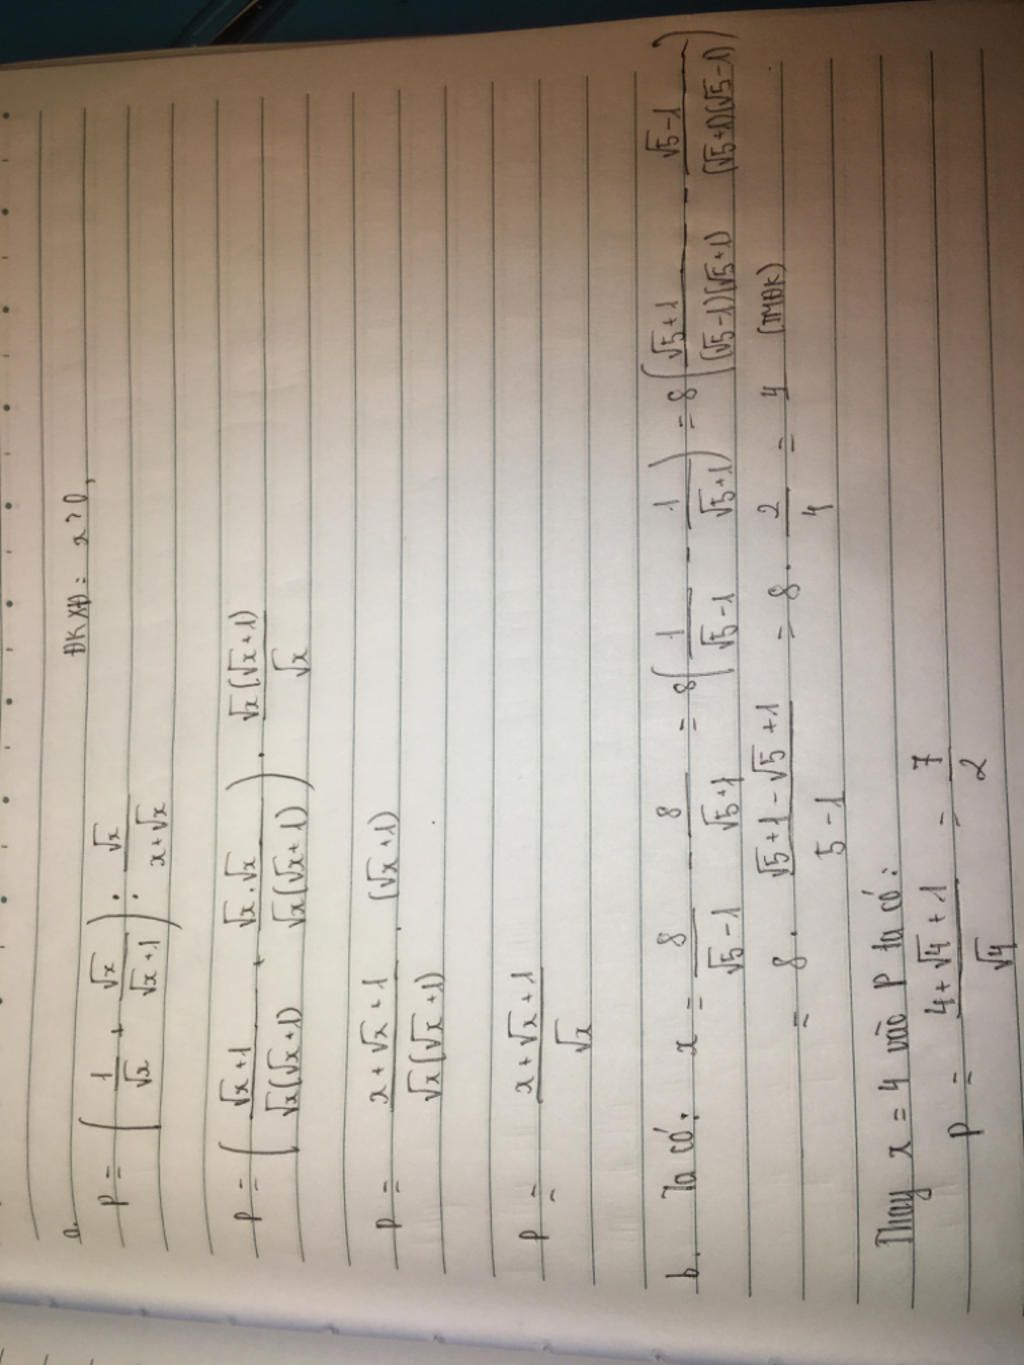 a. ĐKXĐ: x > 0,
P = ( 1/√x + √x/(√x+1) ) : √x/(x+√x)
P = ( (√x+1)/(√x(√x+1)) + (√x.√x)/(√x(√x+1)) ) . √x(√x+1)/√x
P = (x+√x+1)/(√x(√x+1)) . (√x+1)
P = (x+√x+1)/√x
b. Ta có: x = 8/(√5-1) - 8/(√5+1) = 8( 1/(√5-1) - 1/(√5+1) ) = 8( (√5+1)/((√5-1)(√5+1)) - (√5-1)/((√5+1)(√5-1)) )
= 8 . (√5+1-√5+1)/(5-1) = 8 . 2/4 = 4 (TMĐK)
Thay x = 4 vào P ta có:
P = (4+√4+1)/√4 = 7/2